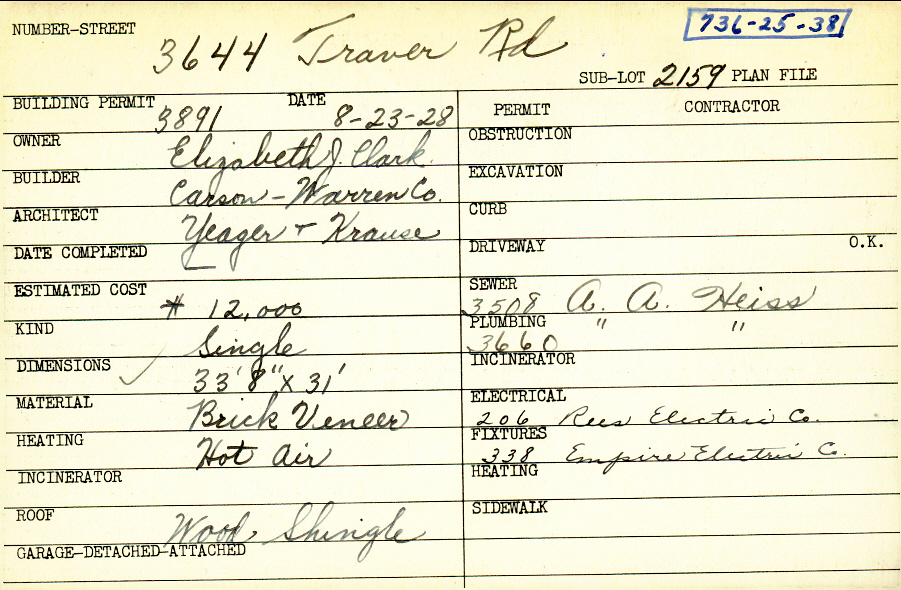 NUMBER-STREET 3644 Traver Rd 736-25-38
SUB-LOT 2159 PLAN FILE
BUILDING PERMIT 3891 DATE 8-23-28
OWNER Elizabeth J. Clark
BUILDER Carson-Warren Co.
ARCHITECT Yeager + Krause
DATE COMPLETED —
ESTIMATED COST $ 12,000
KIND Single
DIMENSIONS ✓ 33'8" X 31'
MATERIAL Brick Veneer
HEATING Hot Air
INCINERATOR
ROOF Wood Shingle
GARAGE-DETACHED-ATTACHED
PERMIT CONTRACTOR
OBSTRUCTION
EXCAVATION
CURB
DRIVEWAY O.K.
SEWER 3508 A. A. Heiss
PLUMBING 3660 " "
INCINERATOR
ELECTRICAL 206 Rees Electric Co.
FIXTURES 338 Empire Electric Co.
HEATING
SIDEWALK